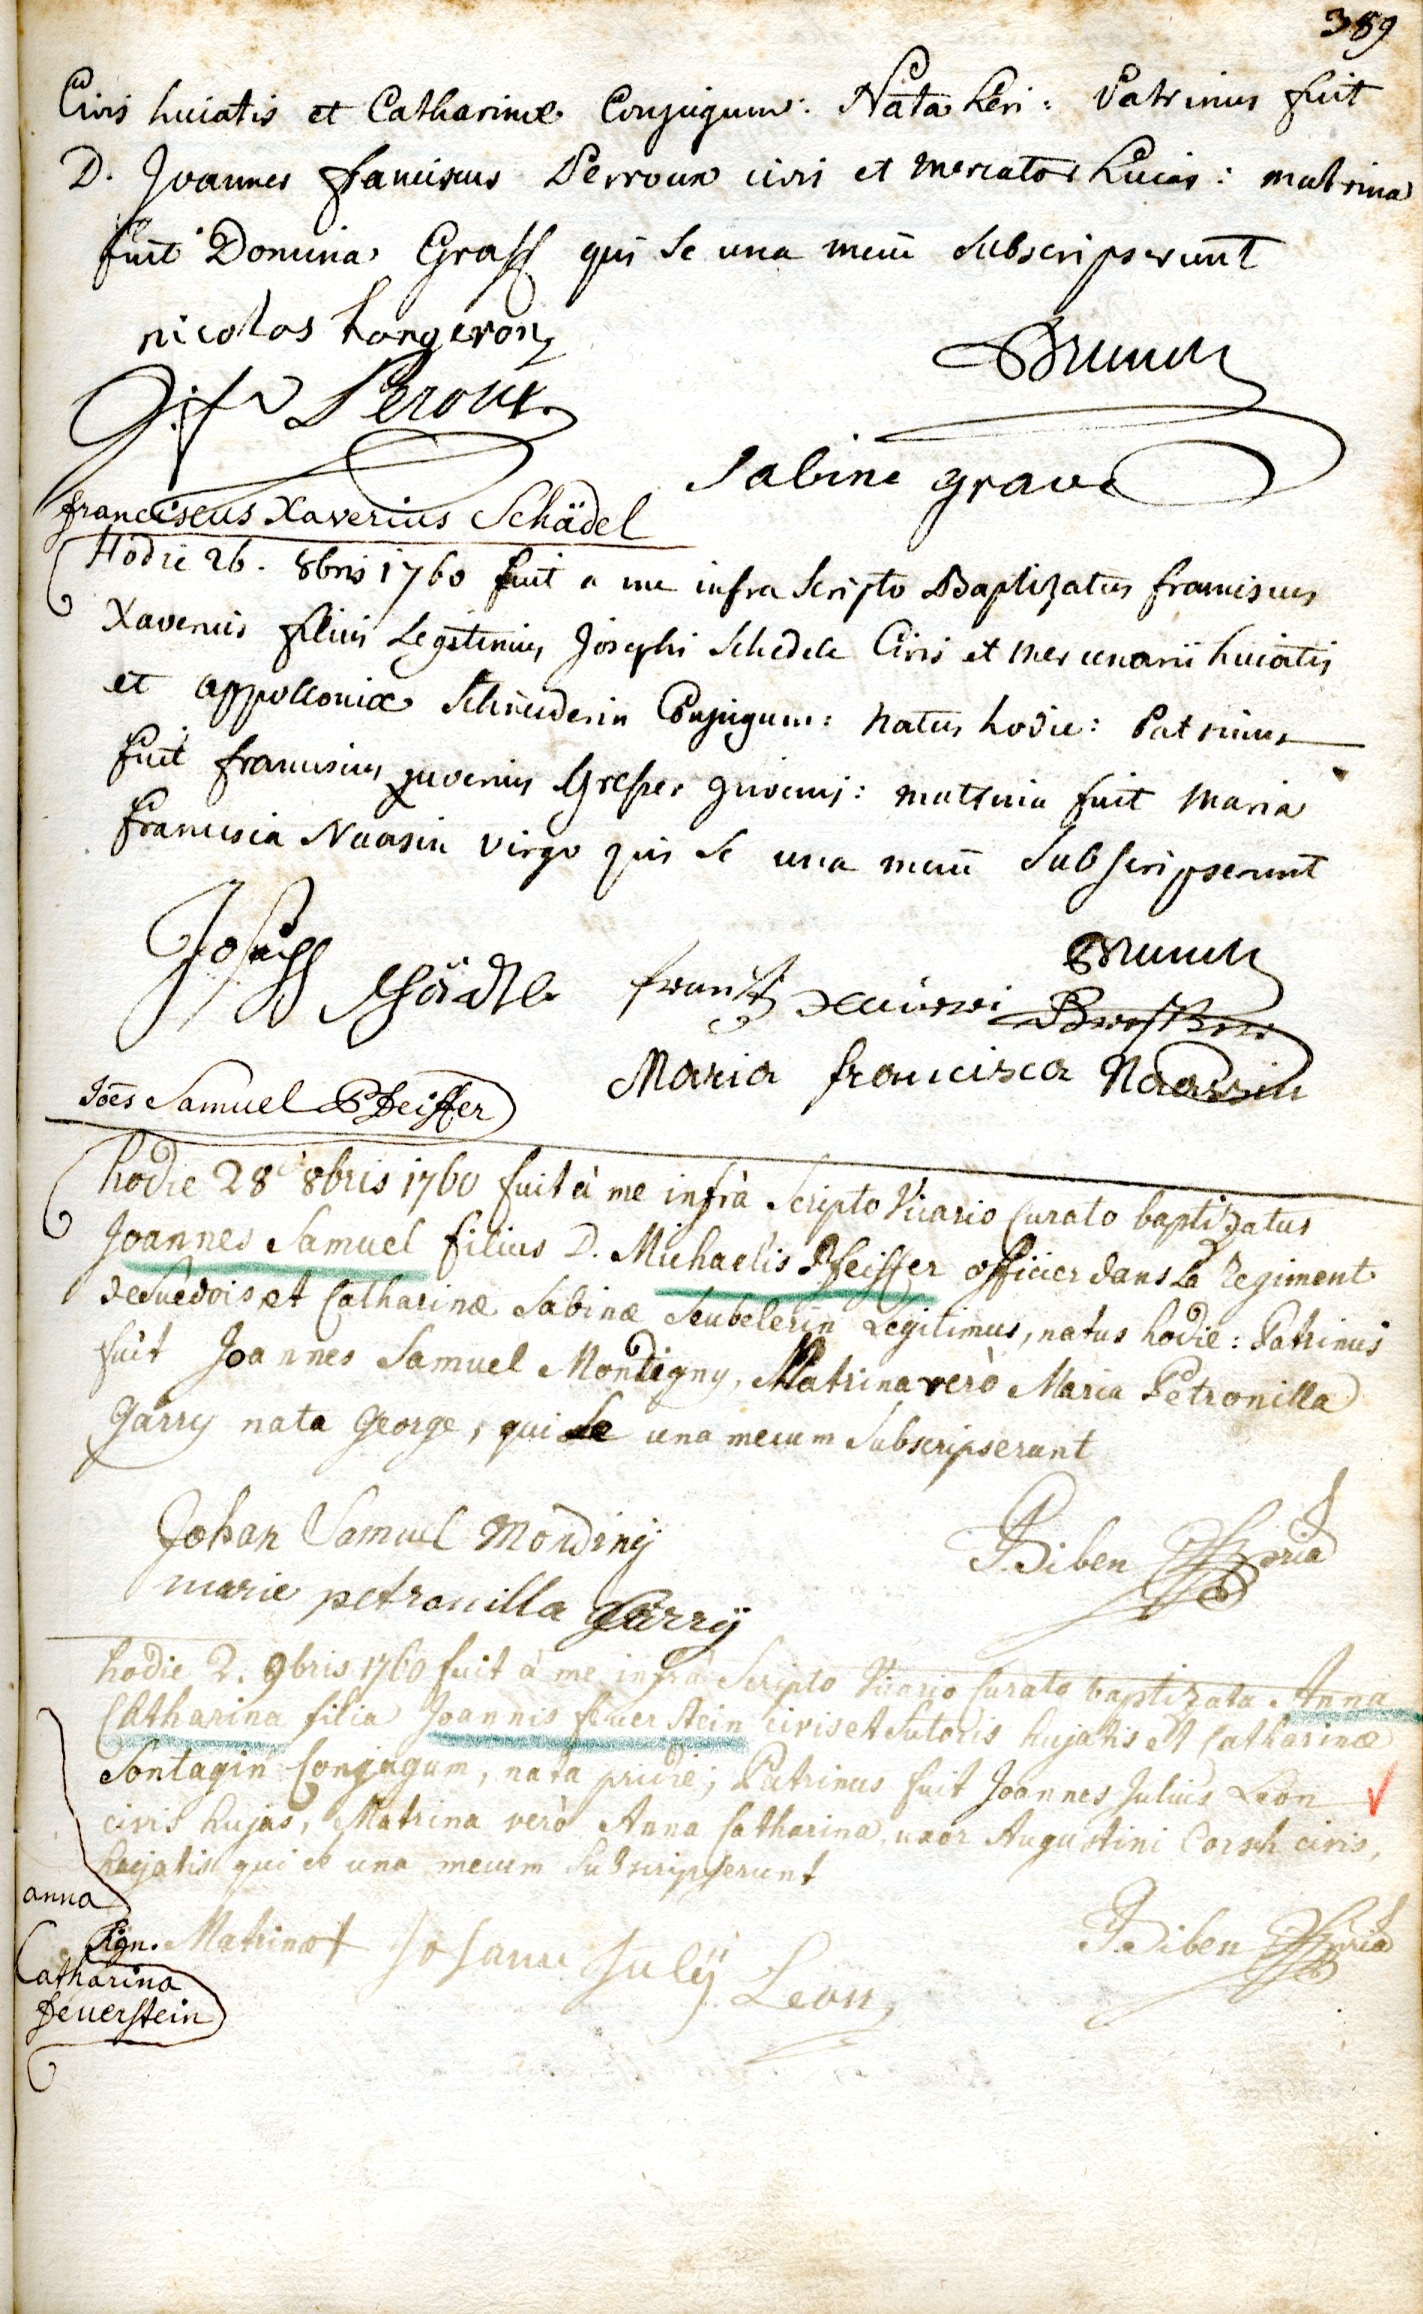 389
Civis huiatis et Catharinæ Conjugum: Nata heri: Patrinus fuit
D. Joannes franciscus Perroux civis et mercator huias: matrina
fuit Domina Graff qui se una mecū subscripserunt
nicolas Longeron
Brunck
J: f Peroux
Sabine grave
franciscus Xaverius Schädel
Hodie 26. 8bris 1760 fuit a me infra scripto Baptizatus franciscus
Xaverius filius Legitimus Josephi Schedele Civis et mercenarii huiatis
et appolloniæ Schneiderin Conjugum: natus hodie: Patrinus
fuit franciscus juvenius juvenis: matrina fuit Maria
francisca Naasin virgo qui se una mecū subscripserunt
Joseph Schädle frantz
Brunck
Maria francisca Naassin
Joēs Samuel Pfeiffer
hodie 28 8bris 1760 fuit à me infrà Scripto Vicario Curato baptizatus
Joannes Samuel filius D. Michaelis Pfeiffer officier dans Le Regiment
de Suedois et Catharinæ Sabinæ Seubelerin Legitimus, natus hodie: Patrinus
fuit Joannes Samuel Mondigny, Matrina verò Maria Petronilla
Garry nata George, qui se una mecum Subscripserunt
Johan Samuel Mondiny
P. Biben
marie petronilla Garrÿ
hodie 2. 9bris 1760 fuit à me infrà Scripto Vicario Curato baptizata Anna
Catharina filia Joannis feuerstein civis et Sutoris hujatis et Catharinæ
Sontagin Conjugum, nata pridie; Patrinus fuit Joannes Julius Leon
civis hujas, Matrina verò Anna Catharina uxor Augustini Corsch civis
hujatis qui se una mecum Subscripserunt
anna
Sign. Matrinæ † Johann Julÿ Leon
P. Biben
Catharina
feuerstein